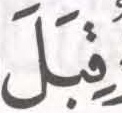 قِبَلَ